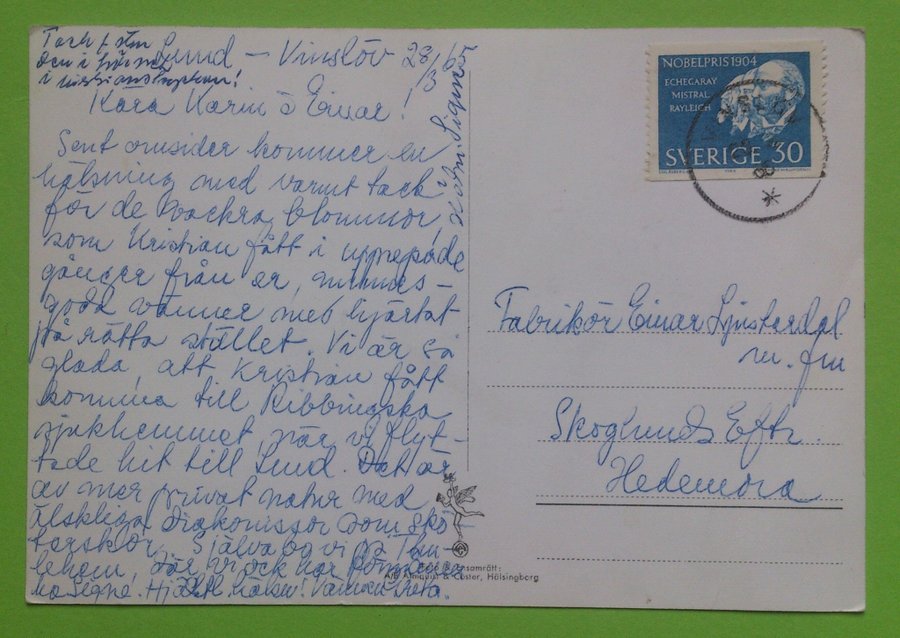 Tack f den
Lund – Vinslöv 28/3 65
Kära Karin o Einar!
Sent omsider kommer en
hälsning med varmt tack
för de vackra blommor,
som Kristian fått i upprepade
gånger från er, minnes-
goda vänner med hjärtat
på rätta stället. Vi är så
glada, att Kristian fått
komma till Ribbingska
sjukhemmet, när vi flyt-
tade hit till Lund. Det är
av mer privat natur med
älskliga diakonissor som skö-
terskor. Själva bo vi på
där vi ock har
Signe. Hjärtl. hälsn!
NOBELPRIS 1904
ECHEGARAY
MISTRAL
RAYLEIGH
SVERIGE 30
Fabrikör Einar
m. fru
Skoglunds Eftr.
Hedemora
Ensamrätt:
A/B Almquist & Cöster, Hälsingborg